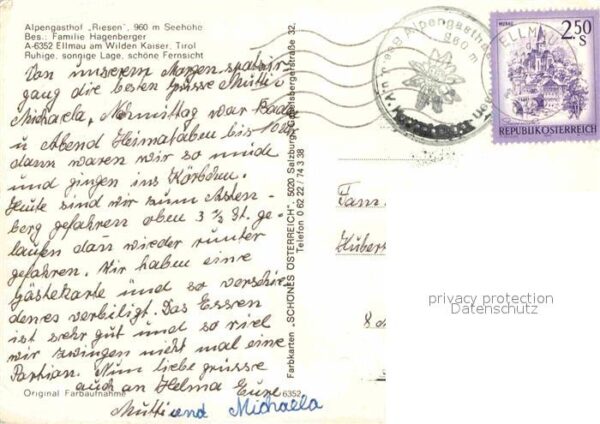 Alpengasthof „Riesen", 960 m Seehöhe
Bes.: Familie Hagenberger
A-6352 Ellmau am Wilden Kaiser, Tirol
Ruhige, sonnige Lage, schöne Fernsicht
Von unserem Morgenspazier
gang die besten Grüsse Mutti
Michaela, Nachmittag war Baden
u Abend Heimatabend bis 10 Uhr
dann waren wir so müde
und gingen ins Körbchen.
Heute sind wir zum Asten-
berg gefahren oben 3 ½ St. ge-
laufen dan wieder runter
gefahren. Wir haben eine
Gästekarte und so verschie
denes verbiligt. Das Essen
ist sehr gut und so viel
wir zwingen nicht mal eine
Partion. Nun liebe grüsse
auch an Helma Eure
Mutti und Michaela
Original Farbaufnahme
6352
Farbkarten „SCHÖNES ÖSTERREICH", 5020 Salzburg, Gabelsbergerstraße 32,
Telefon 0 62 22 / 74 3 38
Alpengasthof
960 m
ELLMAU
MURAU
2.50
S
REPUBLIK ÖSTERREICH
Fam.
Hubert
8
privacy protection
Datenschutz